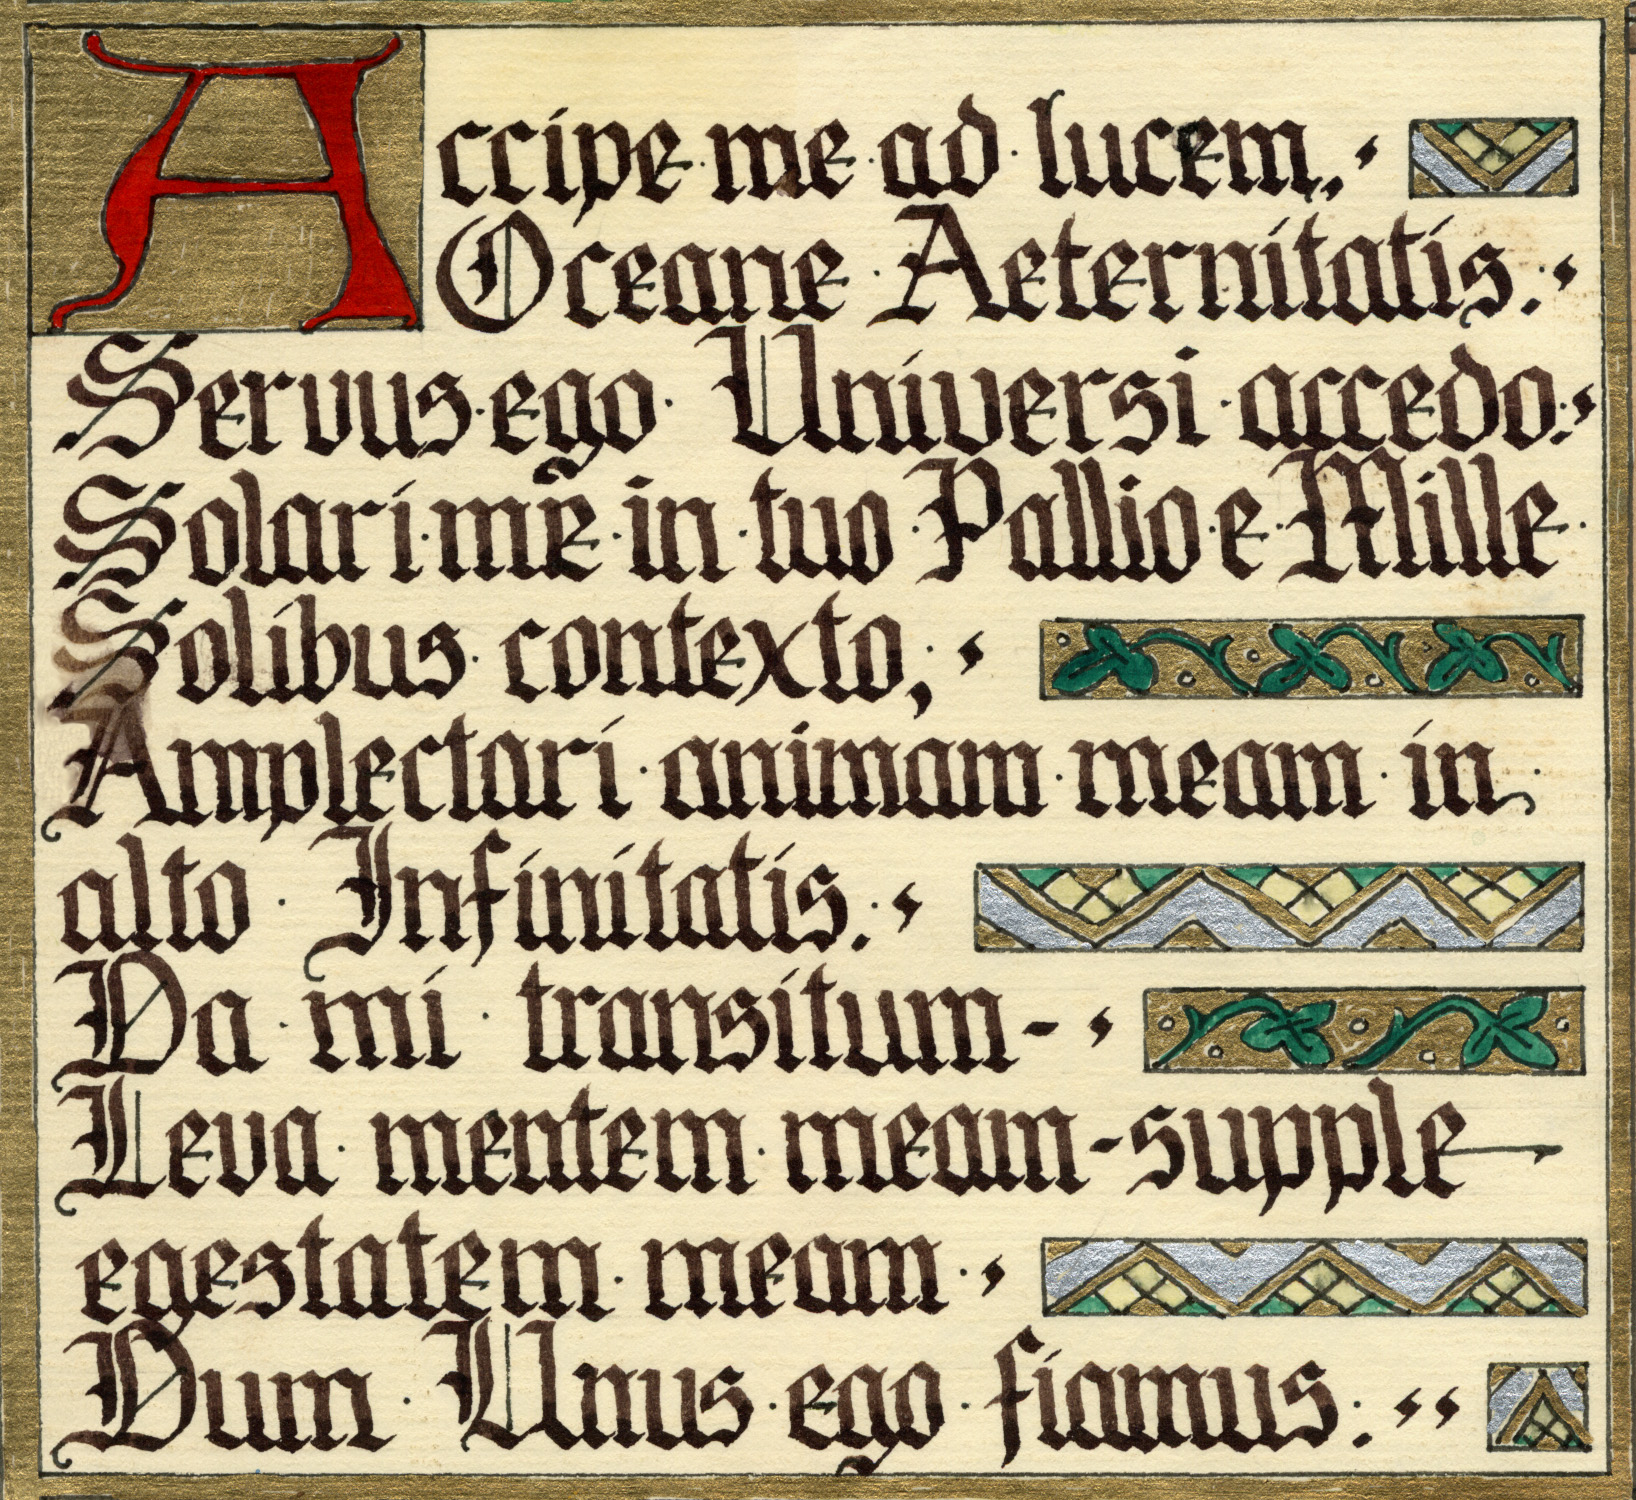 Accipe · me · ad · lucem,
Oceane · Aeternitatis:
Servus · ego · Universi · accedo:
Solari · me · in · tuo · Pallio · e · Mille ·
Solibus · contexto;
Amplectari · animam · meam · in
alto · Infinitatis:
Da · mi · transitum -
Leva · mentem · meam - supple
egestatem · meam ·
Dum · Unus · ego · fiamus: